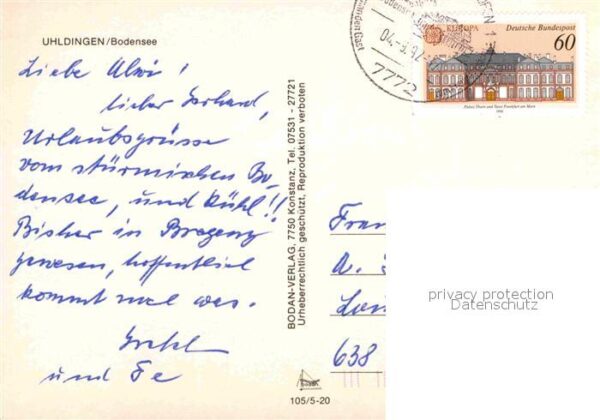 UHLDINGEN/Bodensee
Liebe
lieber Gerhard,
Urlaubsgrüsse
vom stürmischen Bo-
densee, und kühl!!
Bisher in Bregenz
gewesen, hoffentlich
kommt mal was.
und
BODAN-VERLAG, 7750 Konstanz, Tel. 07531 - 27721
Urheberrechtlich geschützt, Reproduktion verboten
105/5-20
7772
EUROPA Deutsche Bundespost
60
Palais Thurn und Taxis Frankfurt am Main
1990
638
privacy protection
Datenschutz